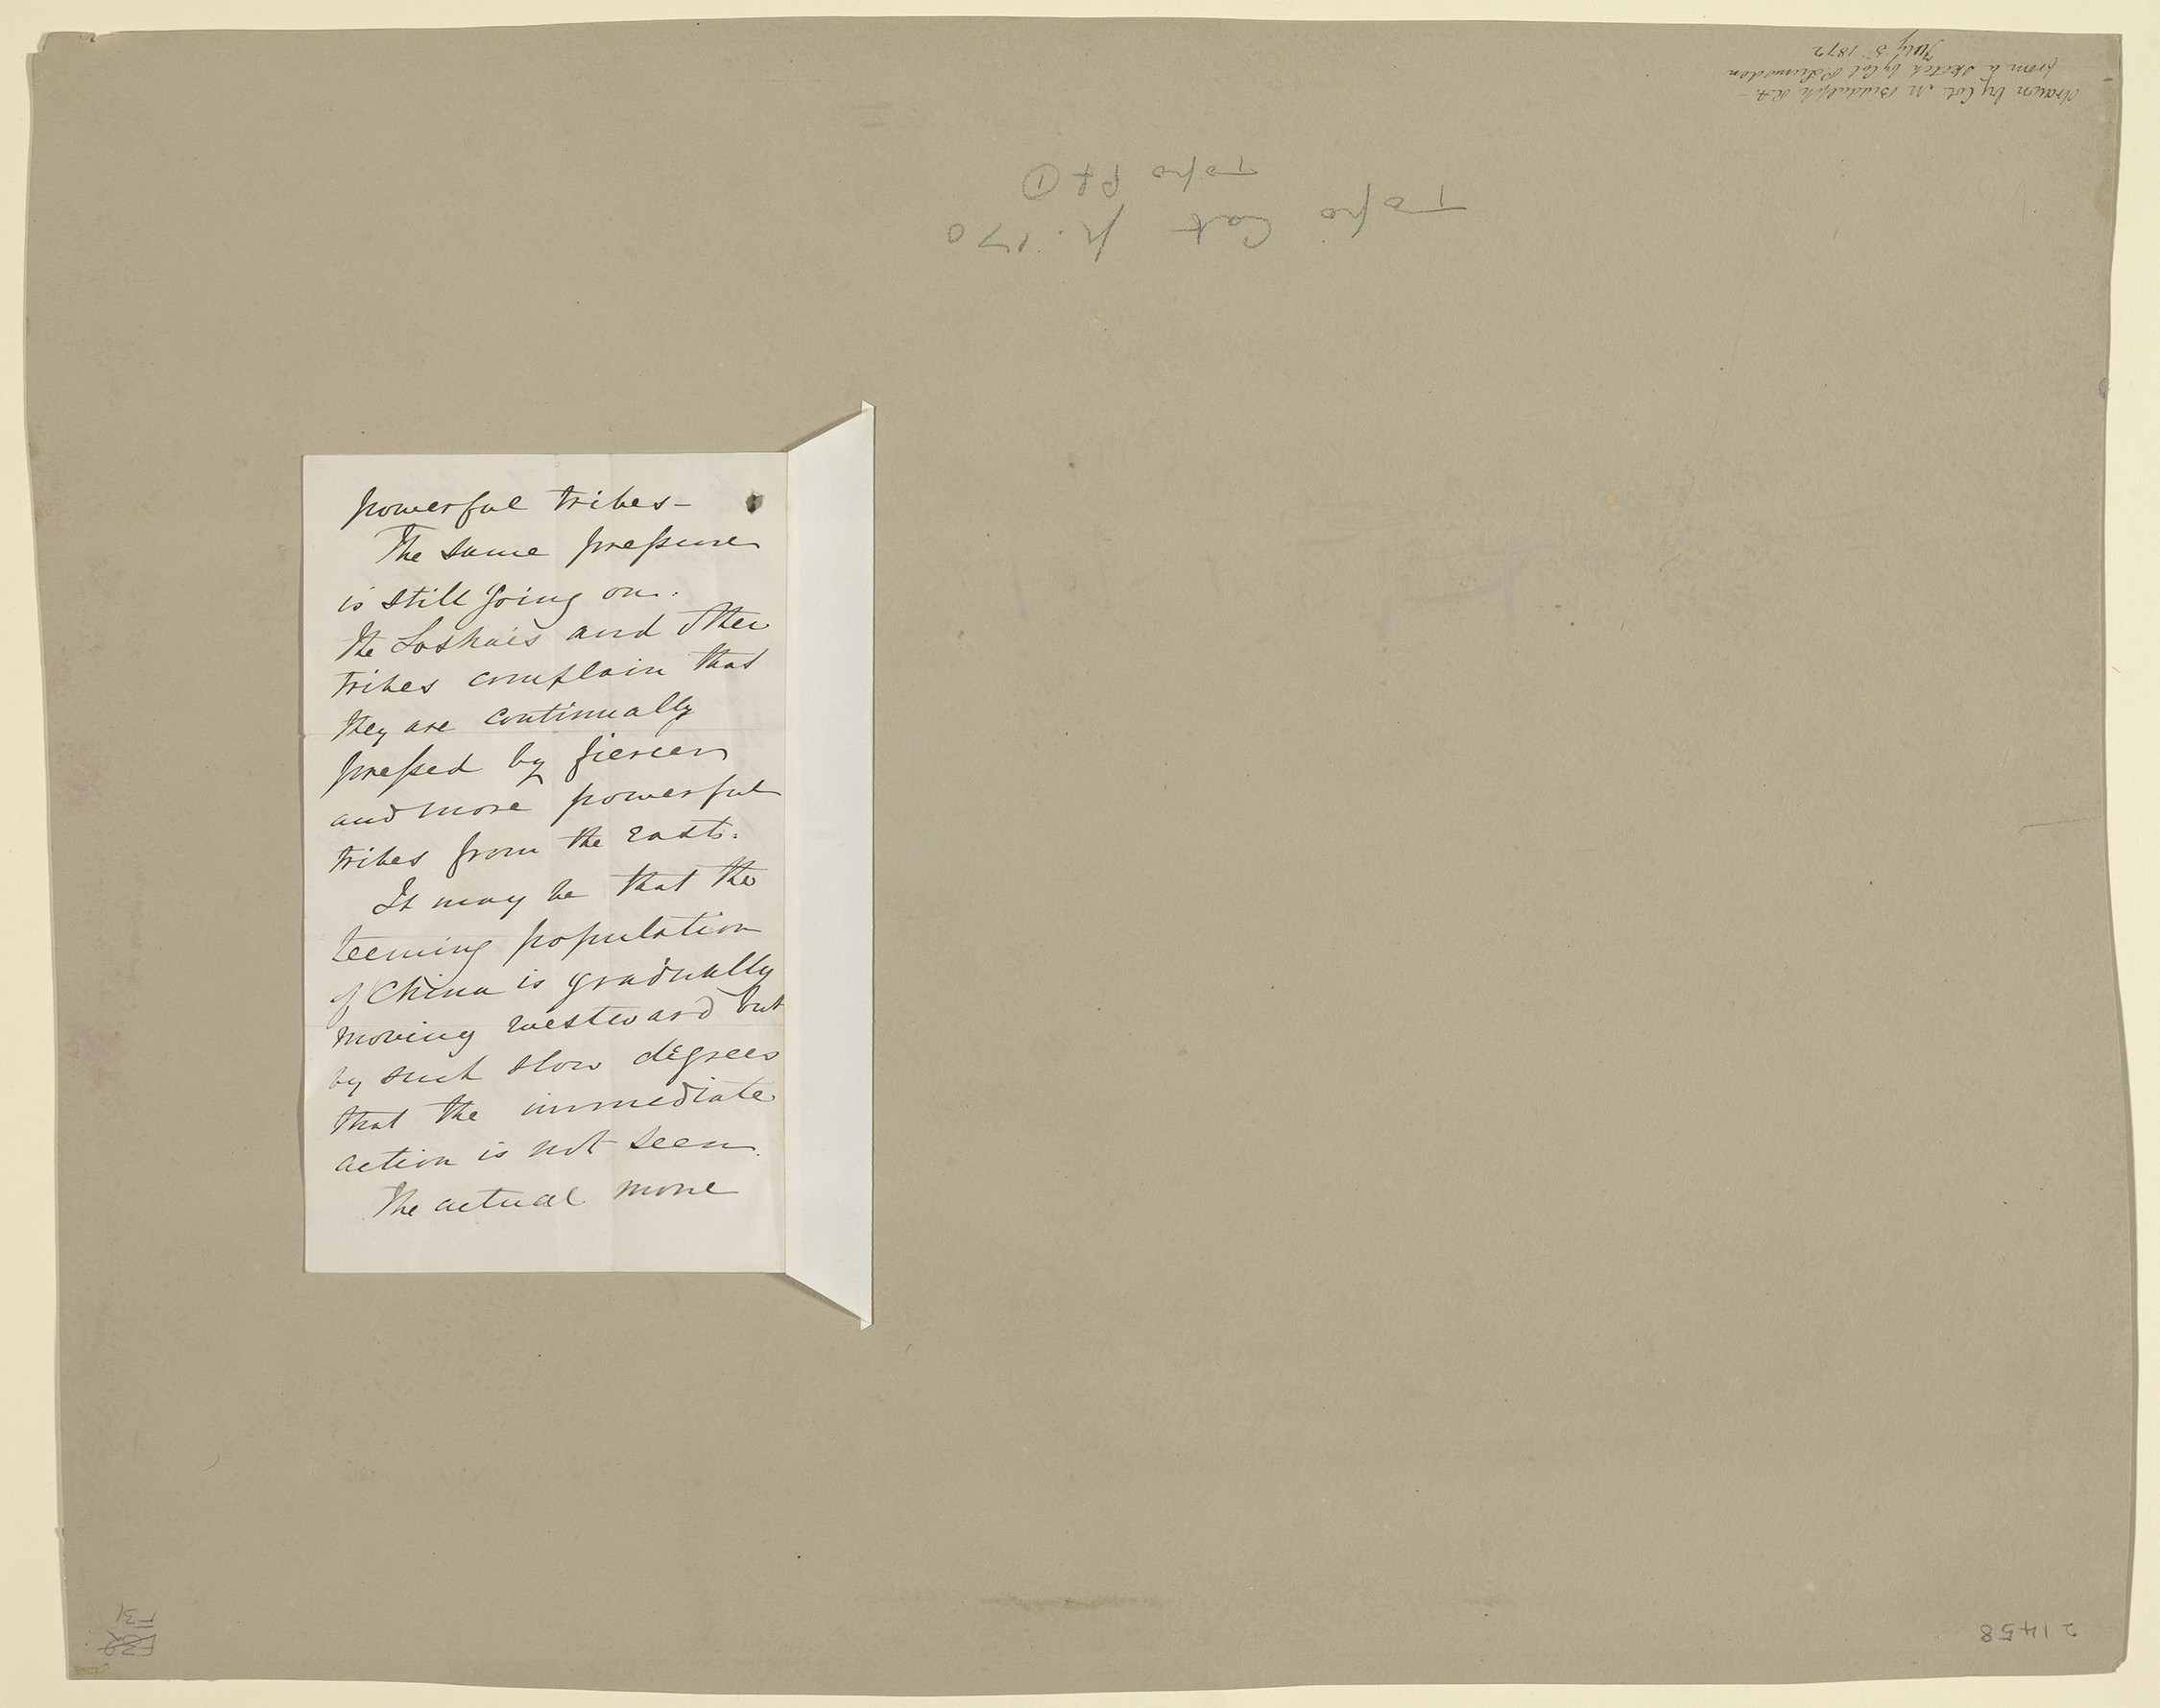 powerful tribes-
The same pressure
is still going on.
The Loshais and other
tribes complain that
they are continually
pressed by fiercer
and more powerful
tribes from the East.
It may be that the
teeming population
of China is gradually
moving westward but
by such slow degrees
that the immediate
action is not seen.
The actual move
drawn by Col. M Biddulph R.A.
from a sketch by Col P. Lumsden
July 5 1872
Topo Cat p. 170
Topo Pt ①
21458
F31